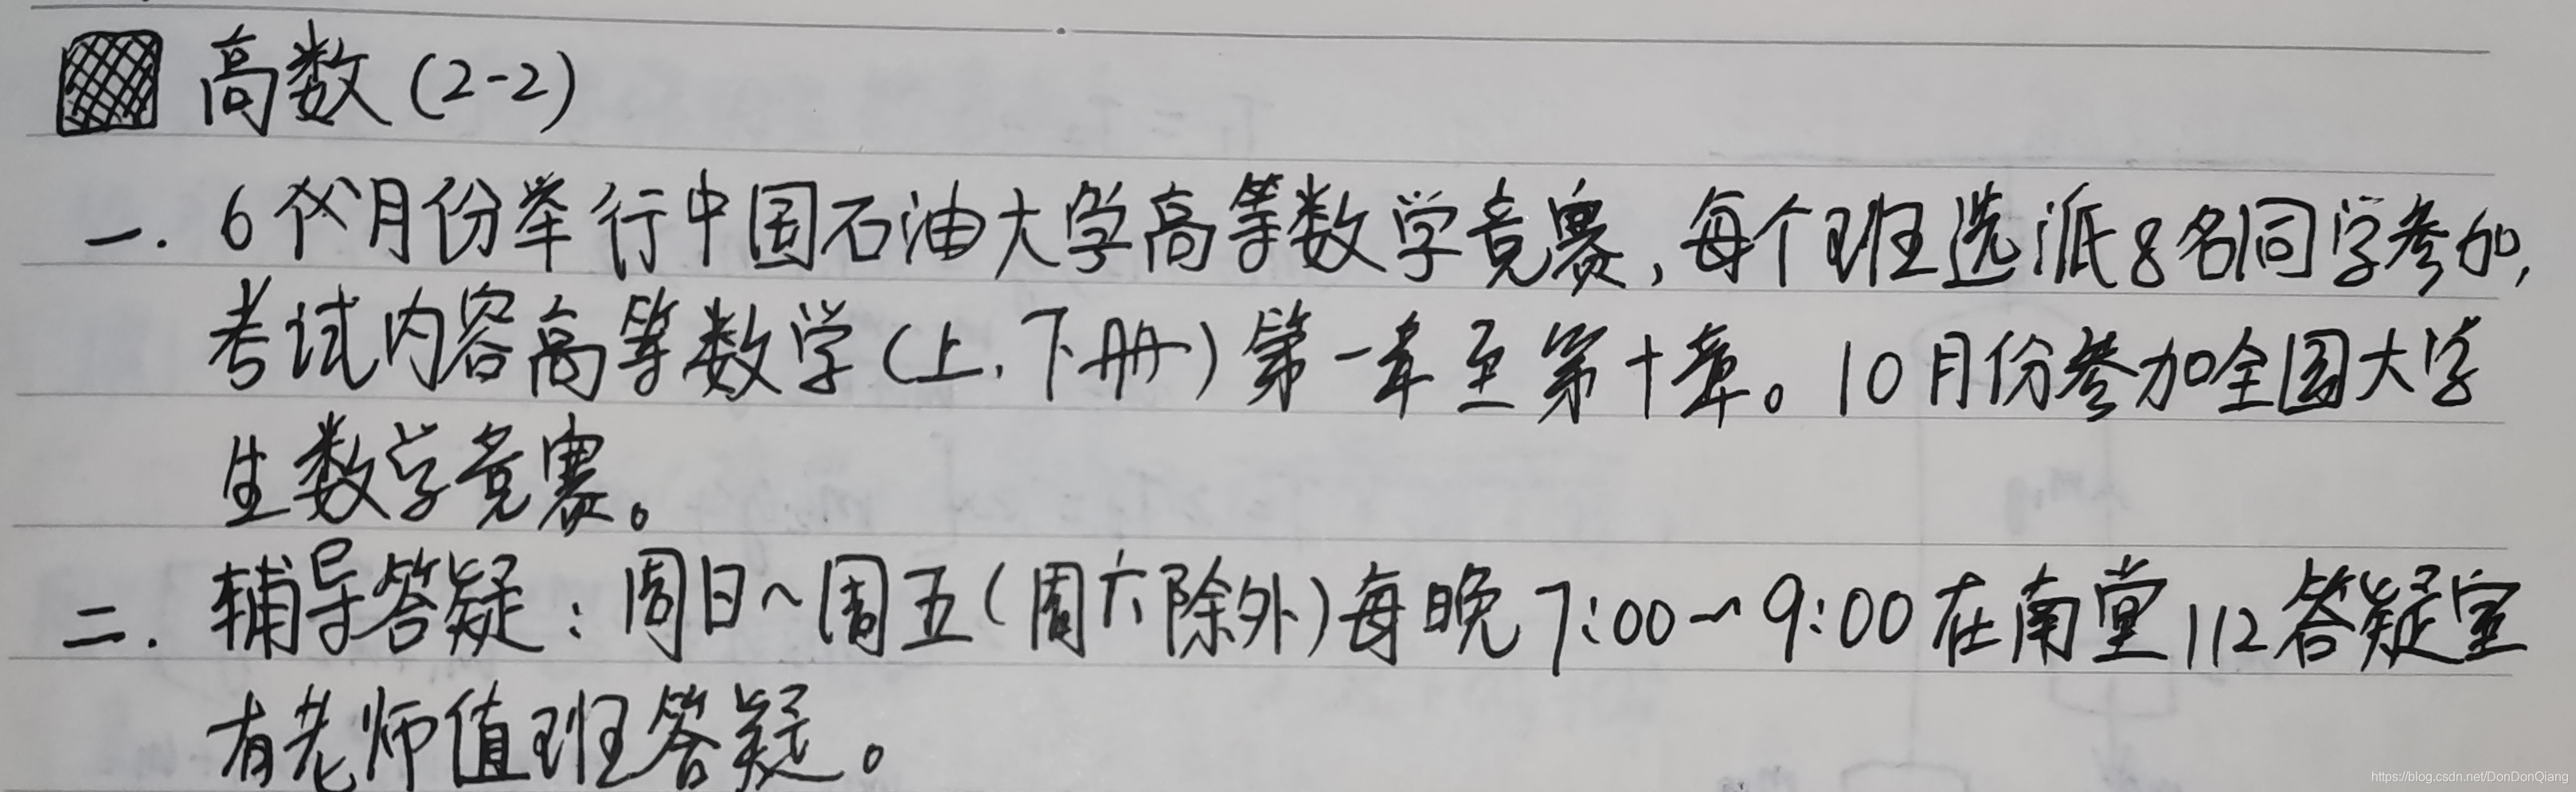 高数(2-2)
一. 6月份举行中国石油大学高等数学竞赛,每个班选派8名同学参加,
考试内容高等数学(上.下册)第一章至第十章。10月份参加全国大学
生数学竞赛。
二. 辅导答疑:周日~周五(周六除外)每晚7:00~9:00在南堂112答疑室
有老师值班答疑。
https://blog.csdn.net/DonDonQiang